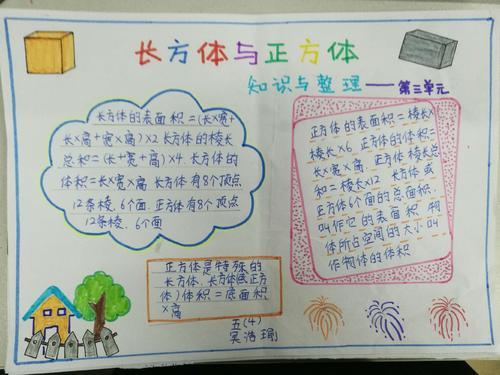 长方体与正方体
知识与整理——第三单元
长方体的表面积=(长×宽+
长×高+宽×高)×2 长方体的棱长
总和=(长+宽+高)×4. 长方体的
体积=长×宽×高 长方体有8个顶点
12条棱、6个面. 正方体有8个顶点
12条棱、6个面
正方体的表面积=棱长×
棱长×6 正方体的体积=
长×宽×高. 正方体棱长总
和=棱长×12 长方体或
正方体6个面的总面积,
叫作它的表面积 物
体所占空间的大小叫
作物体的体积
正方体是特殊的
长方体. 长方体(或正方
体)体积=底面积
×高
五(4)
吴浩